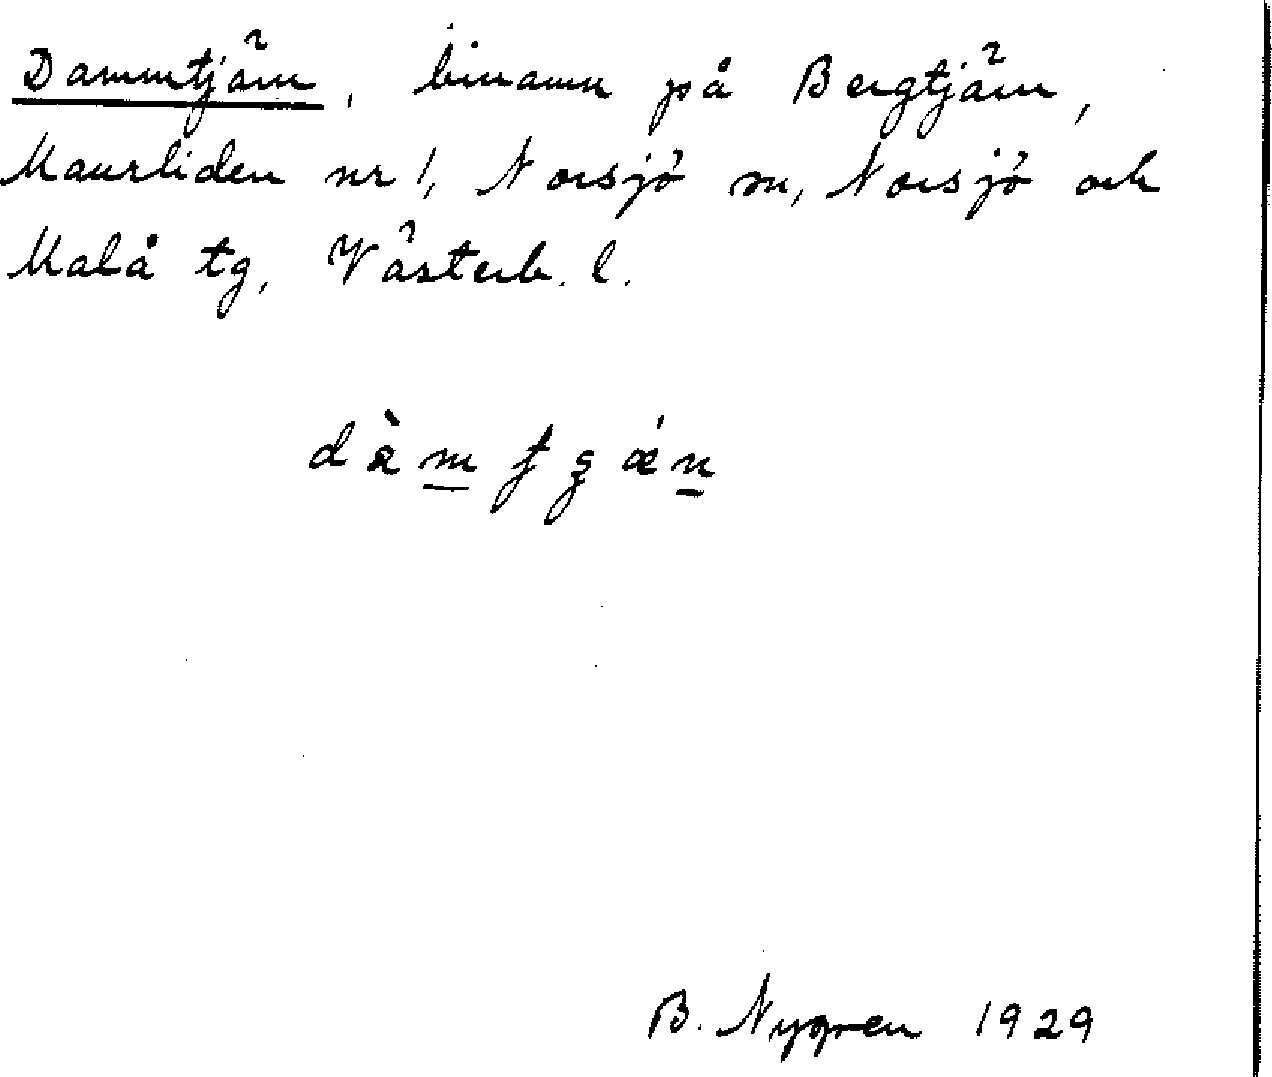 Dammtjärn, binamn på Bergtjärn,
Maurliden nr 1, Norsjö sn, Norsjö och
Malå tg, Västerb. l.
B. Nygren 1929